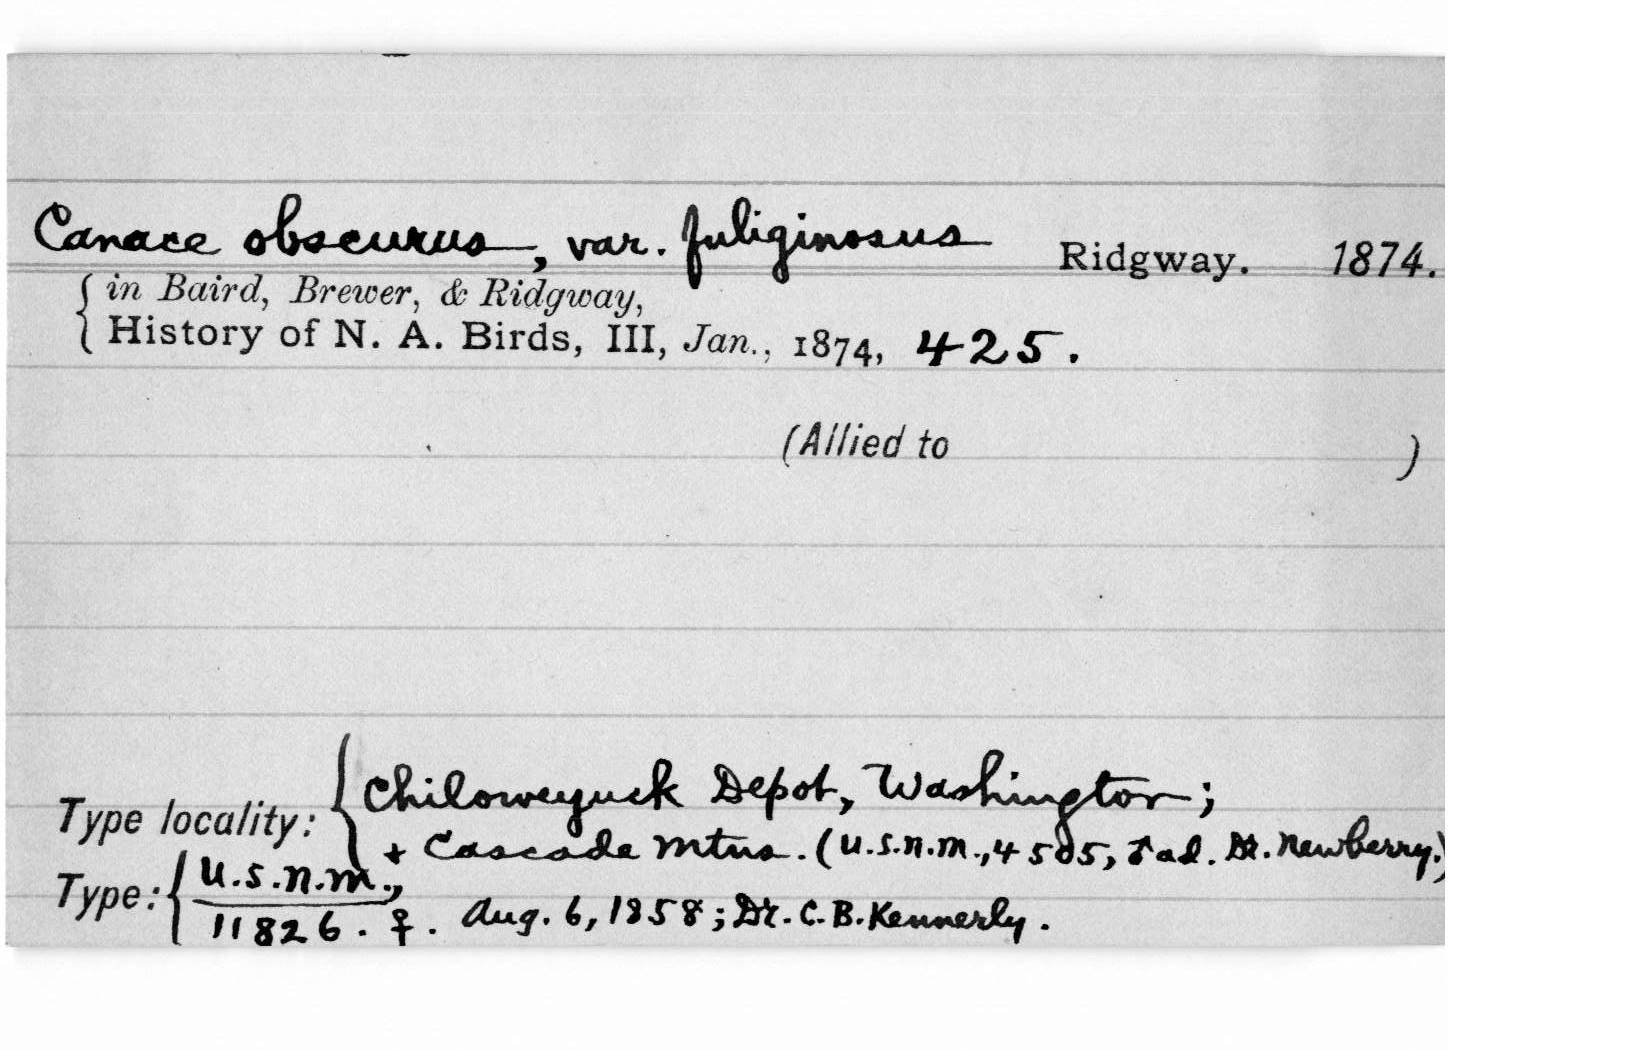 Canace obscurus, var. fuliginosus Ridgway. 1874.
in Baird, Brewer, & Ridgway,
History of N. A. Birds, III, Jan., 1874, 425.
(Allied to )
Type locality: Chiloweyuck Depot, Washington;
+ Cascade Mtns. (U.S.N.M., 4505, ♂ ad. Dr. Newberry.)
Type: U.S.N.M.,
11826. ♀. Aug. 6, 1858; Dr. C. B. Kennerly.